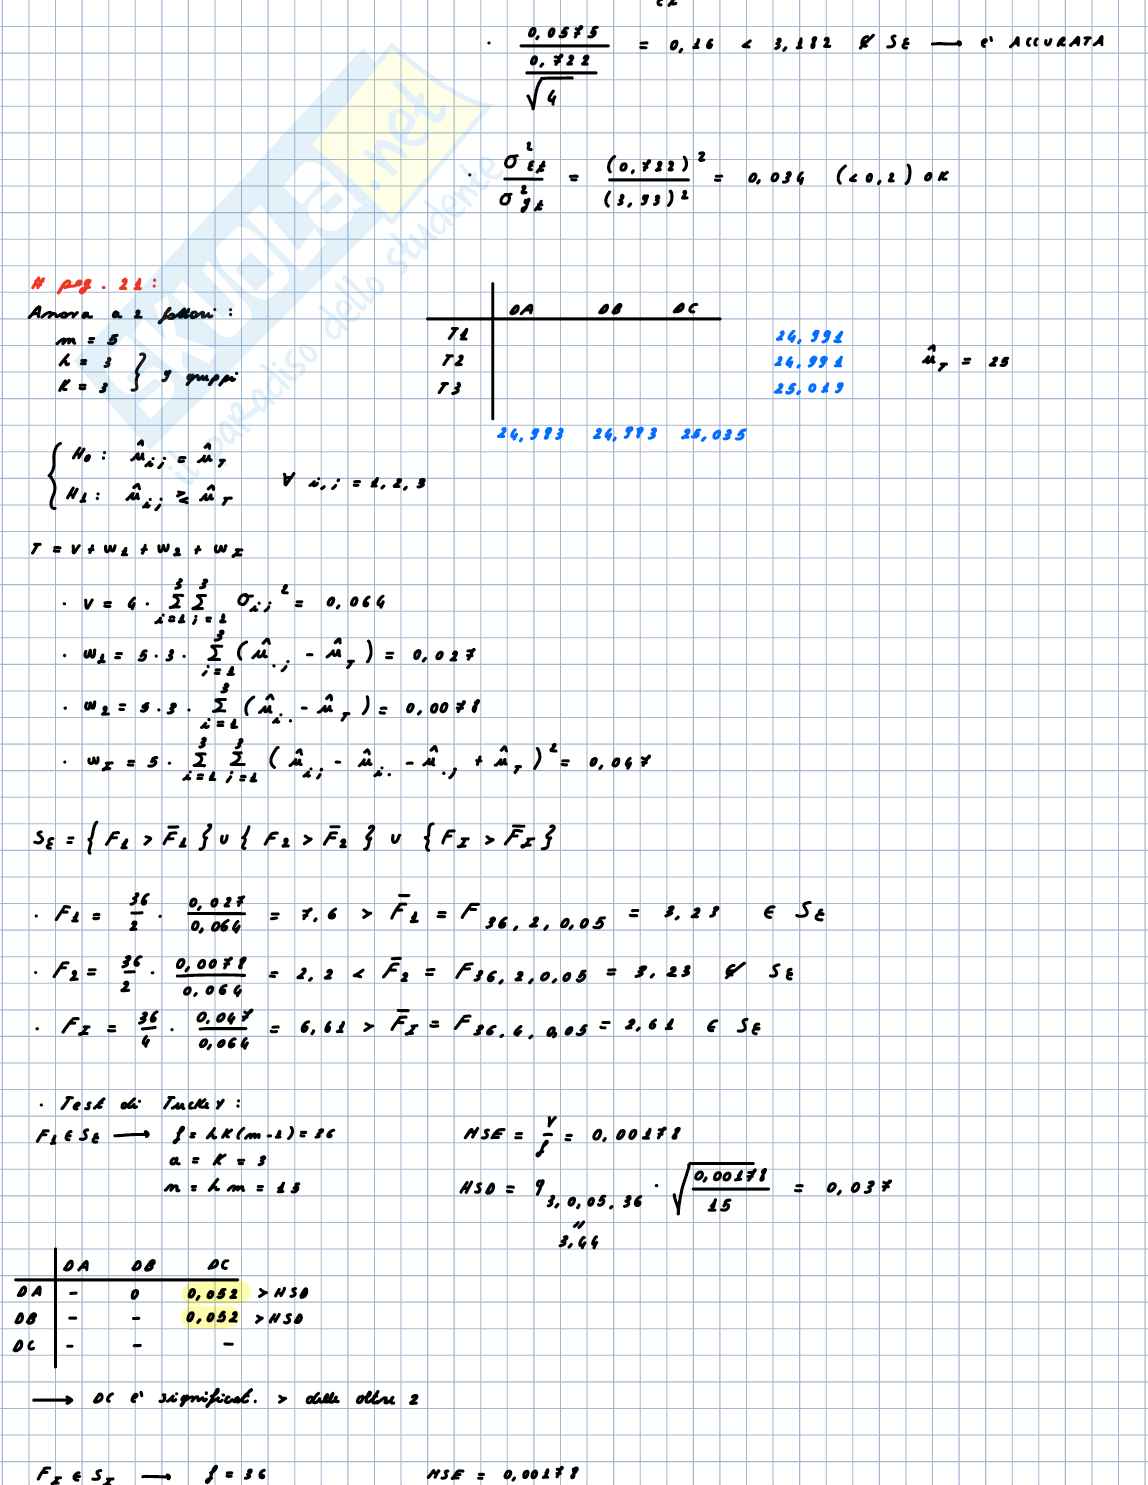 0,0575 / (0,722 / √4) = 0,16 < 3,182 ∉ SE → è ACCURATA
· σ²εt / σ²gt = (0,722)² / (3,93)² = 0,034 (<0,1) OK
SKUOLA.net
il paradiso dello studente
# pag. 21:
Anova a 2 fattori:
m = 5
h = 3
K = 3 } 9 gruppi
DA DB DC
T1 24,991
T2 24,991
T3 25,019
μ̂T = 25
24,983 24,983 25,035
{ H0: μ̂ij = μ̂T
H1: μ̂ij ≷ μ̂T ∀ i,j = 1,2,3
T = V + W1 + W2 + WI
· V = 4 · Σ(i=1..3) Σ(j=1..3) σij² = 0,064
· W1 = 5·3· Σ(j=1..3) (μ̂.j - μ̂T) = 0,027
· W2 = 5·3· Σ(i=1..3) (μ̂i. - μ̂T) = 0,0078
· WI = 5· Σ(i=1..3) Σ(j=1..3) (μ̂ij - μ̂i. - μ̂.j + μ̂T)² = 0,047
SE = { F1 > F̄1 } ∪ { F2 > F̄2 } ∪ { FI > F̄I }
· F1 = 36/2 · 0,027/0,064 = 7,6 > F̄1 = F 36,2,0,05 = 3,23 ∈ SE
· F2 = 36/2 · 0,0078/0,064 = 2,2 < F̄2 = F 36,2,0,05 = 3,23 ∉ SE
· FI = 36/4 · 0,047/0,064 = 6,61 > F̄I = F 36,4,0,05 = 2,61 ∈ SE
· Test di Tuckey:
F1 ∈ SE → f = hK(m-1) = 36 MSE = V/f = 0,00178
a = K = 3
n = hm = 15 HSD = q 3,0,05,36 · √(0,00178 / 15) = 0,037
"
3,44
DA DB DC
DA - 0 0,052 > HSD
DB - - 0,052 > HSD
DC - - -
→ DC è significat. > delle altre 2
FI ∈ SI → f = 36 MSE = 0,00178